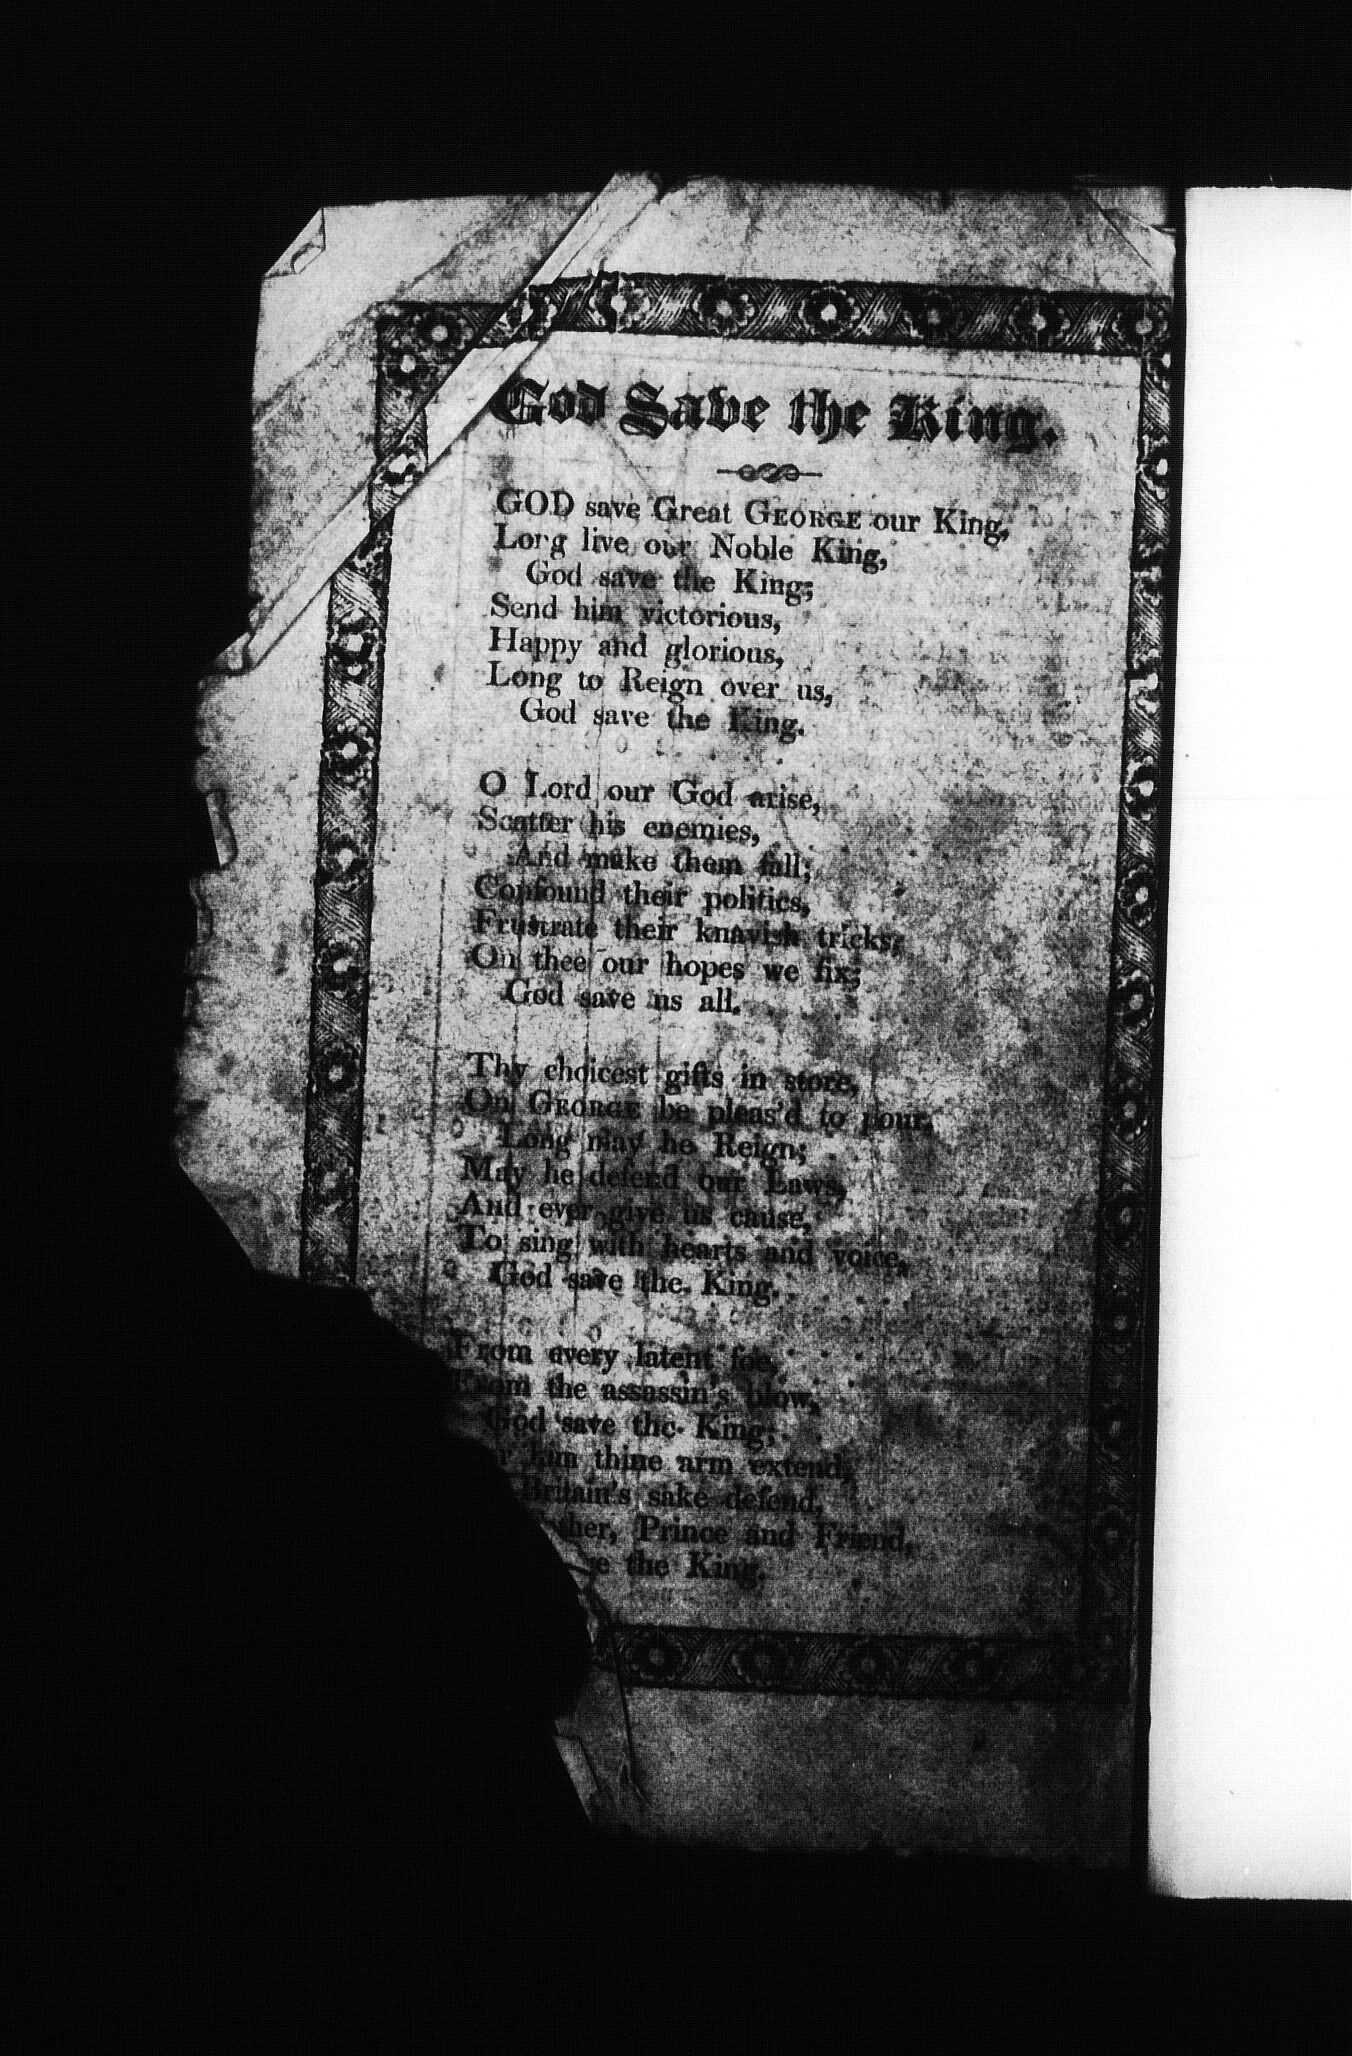 God Save the King.
GOD save Great GEORGE our King,
Long live our Noble King,
God save the King;
Send him victorious,
Happy and glorious,
Long to Reign over us,
God save the King.
O Lord our God arise,
Scatter his enemies,
And make them fall;
Confound their politics,
Frustrate their knavish tricks,
On thee our hopes we fix;
God save us all.
Thy choicest gifts in store,
On GEORGE be pleas'd to pour,
Long may he Reign;
May he defend our Laws,
And ever give us cause,
To sing with hearts and voice,
God save the King.
From every latent foe,
From the assassin's blow,
God save the King;
him thine arm extend,
Britain's sake defend,
Father, Prince and Friend,
the King.